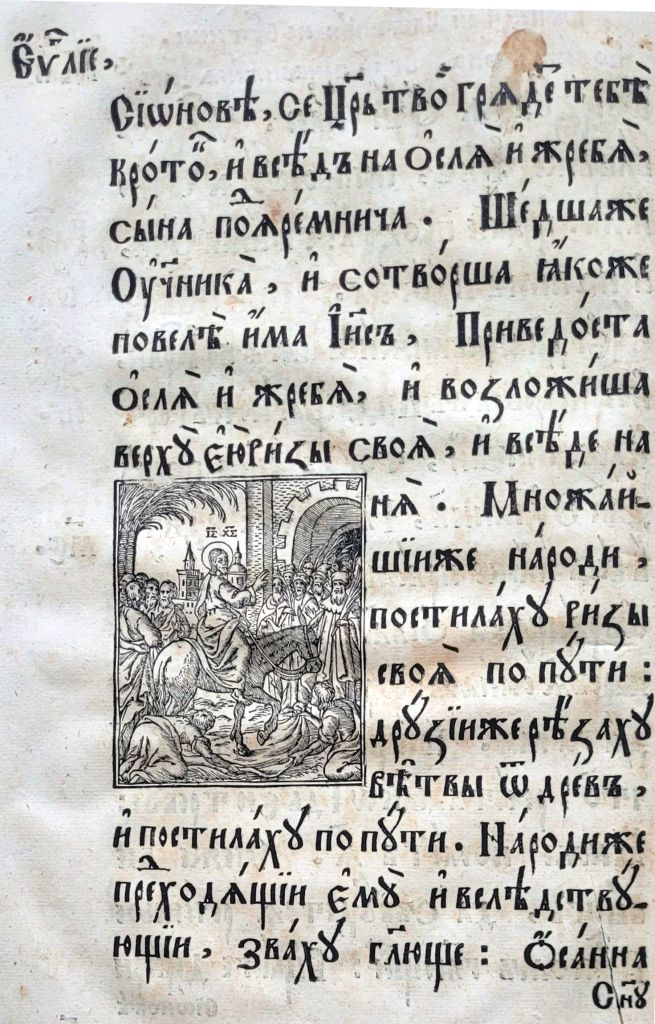 Є҆ѵⷢ҇лїе,
Сїѡ́новѣ, се Цр҃ь тво́й грѧде́тъ тебѣ̀
кро́тⷪ҇къ, и҆ всѣ́дъ на Ѻ҆слѧ̀ и҆ жребѧ̀,
сы́на под̾ѧре́мнича. Ше́дшаже
Оу҆чн҃ика̀, и҆ сотво́рша ꙗ҆́коже
повелѣ̀ и҆́ма І҆и҃съ, Приведо́ста
ѻ҆слѧ̀ и҆ жребѧ̀, и҆ возложи́ша
верхꙋ̀ є҆ю̀ ри́зы своѧ̀, и҆ всѣ́де на
І҃С Х҃С
нѧ̀. Множа́й-
шїиже наро́ди,
постила́хꙋ ри́зы
своѧ̀ по пꙋтѝ:
дрꙋ́зїиже рѣ́захꙋ
вѣ́твы ѿ дре́въ,
и҆ постила́хꙋ по пꙋтѝ. На́родиже
предходѧ́щїи є҆мꙋ̀ и҆ вслѣ́дствꙋ-
ющїи, зва́хꙋ гл҃юще: Ѻ҆са́нна
Сн҃ꙋ